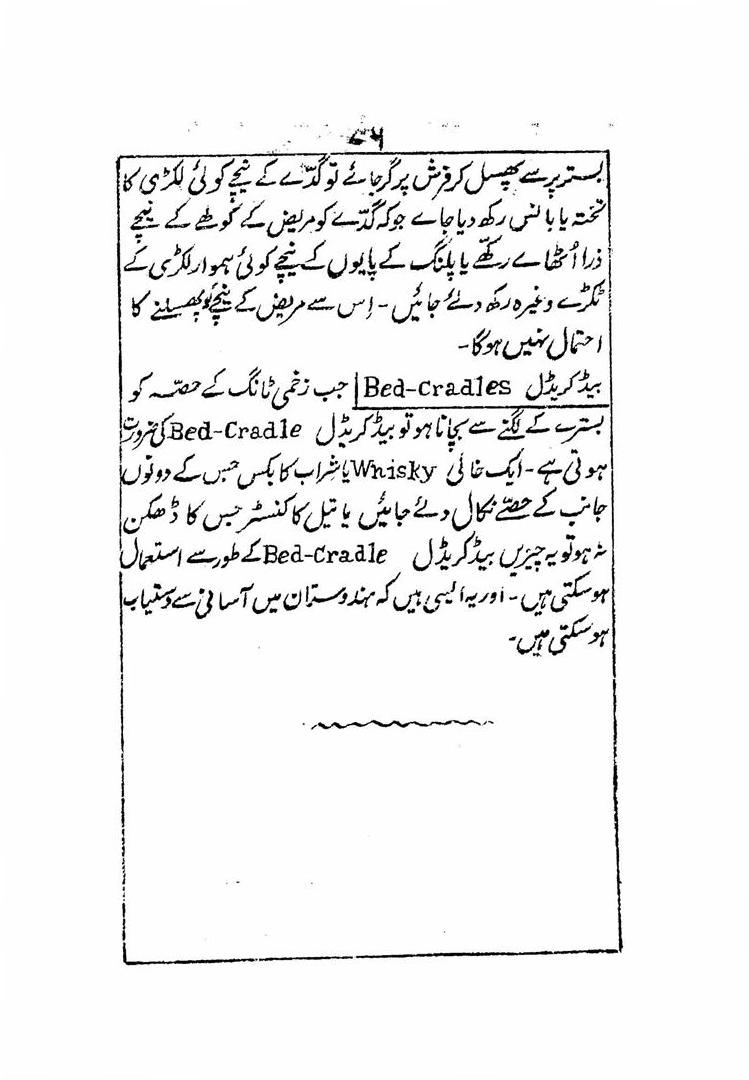 ۷۶
بستر پر سے پھسل کر فرش پر گر جائے تو گدّے کے نیچے کوئی لکڑی کا
تختہ یا بانس رکھ دیا جاے جو کہ گدّے کو مریض کے کوٹھے کے نیچے
ذرا اُٹھاے رکھّے یا پلنگ کے پایوں کے نیچے کوئی ہموار لکڑی کے
ٹکڑے وغیرہ رکھ دئے جائیں - اِس سے مریض کے نیچے کو پھسلنے کا
احتمال نہیں ہوگا -
بیڈ کریڈل Bed-Cradles جب زخمی ٹانگ کے حصّہ کو
بسترے کے لگنے سے بچانا ہو تو بیڈ کریڈل Bed-Cradle کی ضرورت
ہوتی ہے - ایک خالی Whisky یا شراب کا بکس جس کے دونوں
جانب کے حصّے نکال دئے جائیں یا تیل کا کنسٹر جس کا ڈھکن
نہ ہو تو یہ چیزیں بیڈ کریڈل Bed-Cradle کے طور سے استعمال
ہوسکتی ہیں - اور یہ ایسی ہیں کہ ہندوستان میں آسانی سے دستیاب
ہوسکتی ہیں -